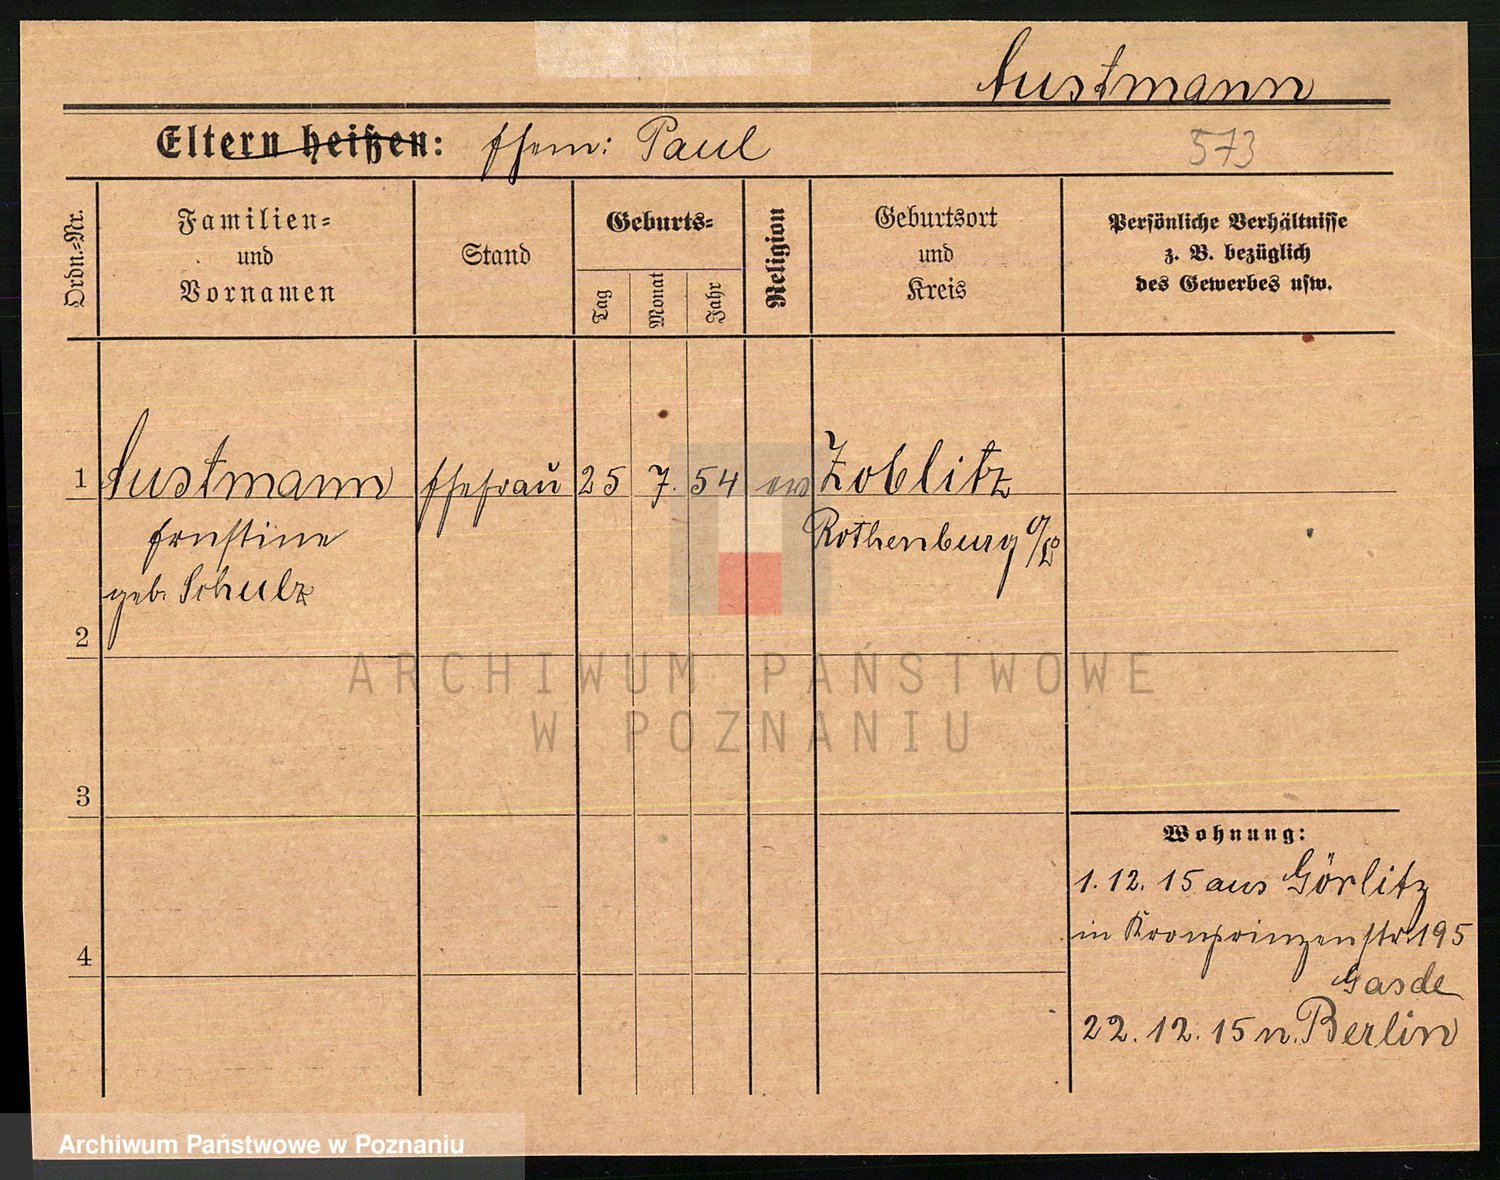 Austmann
Eltern heißen: Ehem: Paul 573
Ordn.-Nr.
Familien-
und
Vornamen
Stand
Geburts-
Tag
Monat
Jahr
Religion
Geburtsort
und
Kreis
Persönliche Verhältnisse
z. B. bezüglich
des Gewerbes usw.
1 Austmann Ehefrau 25 7. 54 ev Zoblitz
Ernstine Rothenburg O/L
geb. Schulz
2
ARCHIWUM PAŃSTWOWE
W POZNANIU
3
Wohnung:
1. 12. 15 aus Görlitz
in Kronprinzenstr. 195
4
Gasde
22. 12. 15 n. Berlin
Archiwum Państwowe w Poznaniu